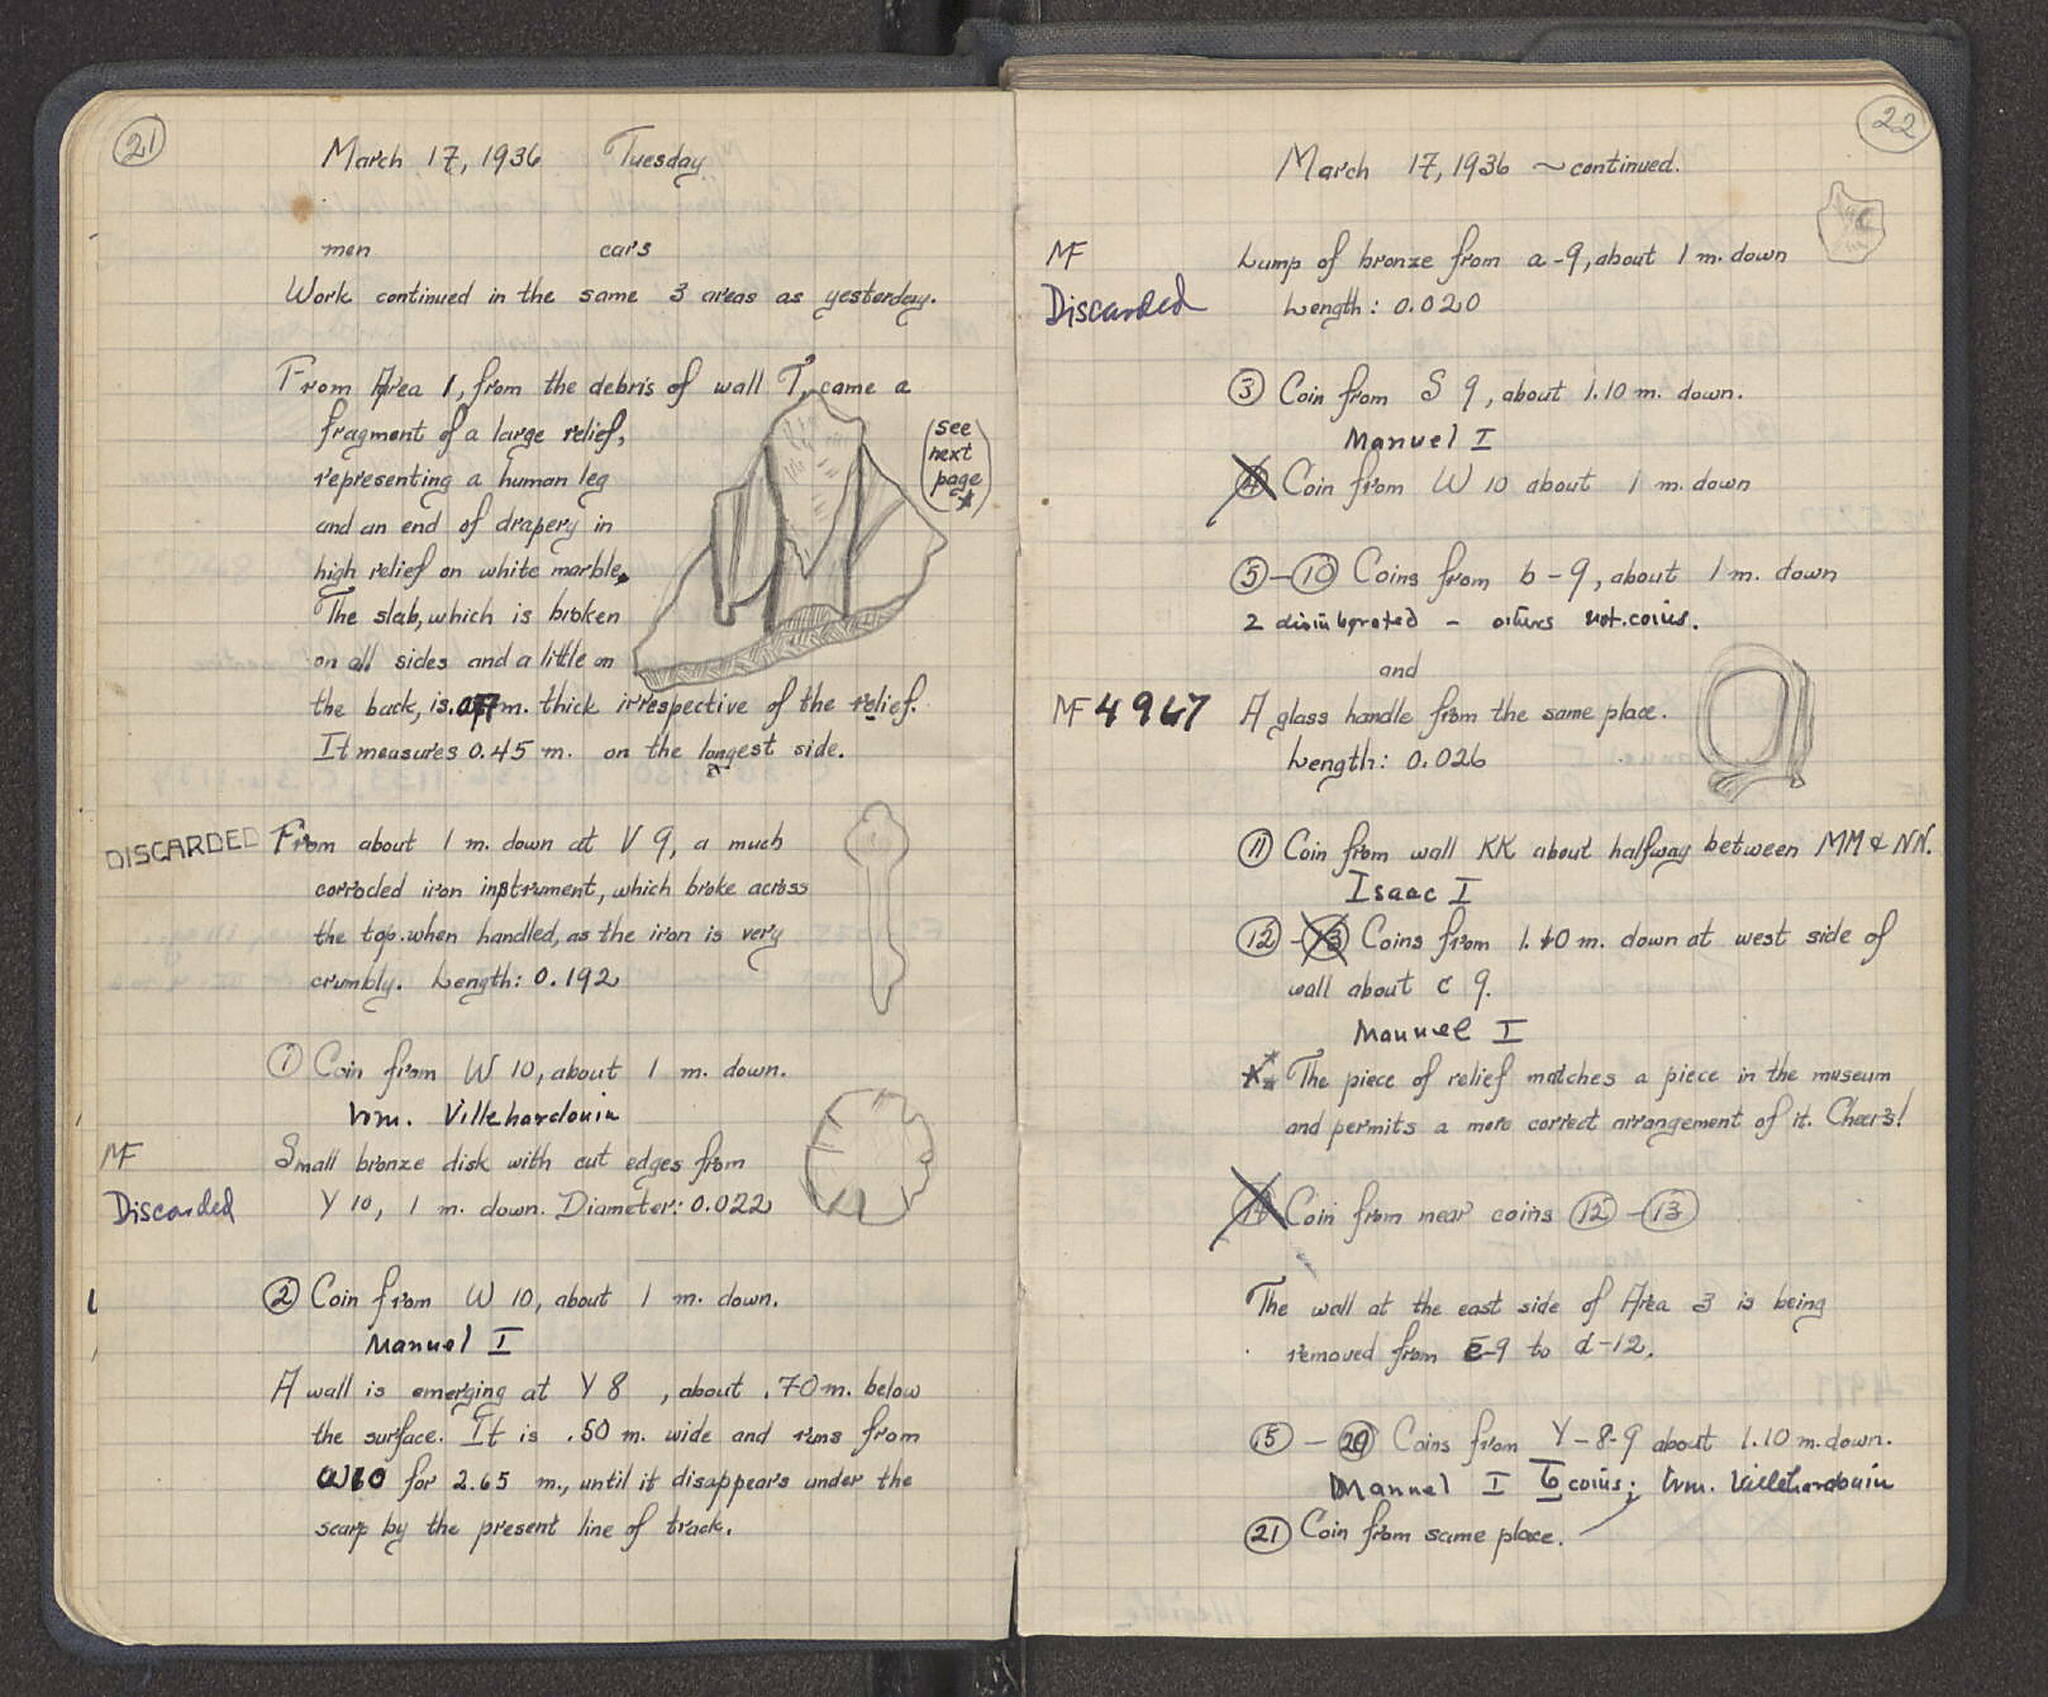 21
March 17, 1936 Tuesday
men cars
Work continued in the same 3 areas as yesterday.
From Area 1, from the debris of wall T, came a
fragment of a large relief,
representing a human leg
and an end of drapery in
high relief on white marble.
The slab, which is broken
on all sides and a little on
the back, is .077 m. thick irrespective of the relief.
It measures 0.45 m. on the longest side.
(see
next
page
*)
DISCARDED From about 1 m. down at V 9, a much
corroded iron instrument, which broke across
the top when handled, as the iron is very
crumbly. Length: 0.192
① Coin from W 10, about 1 m. down.
Wm. Villehardouin
MF Small bronze disk with cut edges from
Discarded Y 10, 1 m. down. Diameter: 0.022
② Coin from W 10, about 1 m. down.
Manuel I
A wall is emerging at Y 8, about .70 m. below
the surface. It is .50 m. wide and runs from
W10 for 2.65 m., until it disappears under the
scarp by the present line of track.
22
March 17, 1936 ~ continued.
MF Lump of bronze from a-9, about 1 m. down
Discarded Length: 0.020
③ Coin from S 9, about 1.10 m. down.
Manuel I
④ Coin from W 10 about 1 m. down
⑤-⑩ Coins from b-9, about 1 m. down
2 disintegrated - others not coins.
and
MF 4967 A glass handle from the same place.
Length: 0.026
⑪ Coin from wall KK about halfway between MM & NN.
Isaac I
⑫-⑬ Coins from 1.10 m. down at west side of
wall about c 9.
Manuel I
* The piece of relief matches a piece in the museum
and permits a more correct arrangement of it. Cheers!
⑭ Coin from near coins ⑫-⑬
The wall at the east side of Area 3 is being
removed from E-9 to d-12.
⑮-⑳ Coins from Y-8-9 about 1.10 m. down.
Manuel I 6 coins; Wm. Villehardouin
㉑ Coin from same place.